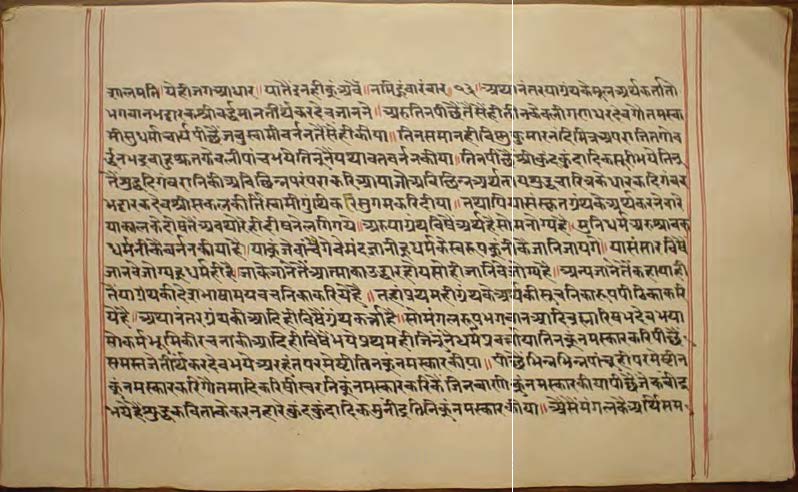 ॥ यातैं इनही कूं ध्येवैं ॥ नमिहूं वारंवार ॥ अथानंतर या ग्रंथ के मूल अर्थ कर्ता तो
भगवान भट्टारक श्री वर्द्धमान तीर्थंकर देव जानने ॥ अरु तिन पीछैं तैसें ही तीनके वली गणधर देव गौतमस्वा
मी सुधर्माचार्य पीछैं जंबुस्वामी वर्नन तैसें ही कीया ॥ तिन समान ही विष्णुकुमार नंदिमित्र अपराजित गोव
र्द्धन भद्रबाहु श्रुतकेवली पांच भये तिनूनैं यथावत वर्नन कीया ॥ तिन पीछैं श्री कुंदकुंदादिक मुनी भये तिनू
नैं शुद्ध दिगंबरानि की अविछिन्न परंपरा करि आया जो अविछिन्न अर्थ ताय शुद्ध चारित्र के धारक दिगंबर
भट्टारक देव श्री सकलकीर्ति स्वामी गुंथि करि सुगम करि दीया ॥ तथापि या संस्कृत ग्रंथ के अर्थ करनेवारे
या काल के दोष तैं अवयोरे ही दीषने लगि गये ॥ अरु या ग्रंथ विषैं अर्थ है सो मनोग्य है ॥ मुनिधर्म अरु श्रावक
धर्म नीकै वर्नन कीया है ॥ या कूं जे वांचैंगे वे मंदज्ञानी हू धर्म के स्वरूप कूं नीकै जानि जायगे ॥ या संसार विषैं
जानवे जोग्य इह धर्म ही है ॥ जाके जाने तैं आत्मा का उद्धार होय सो ही जानिवे जोग्य है ॥ अन्य जाने तैं कहा या ही
तैं या ग्रंथ की देशभाषामय वचनिका करिये है ॥ तहां प्रथम ही ग्रंथ के अर्थ की सूचनिका रूप पीठिका करि
ये है ॥ अथानंतर ग्रंथ की आदि ही विषैं ग्रंथकर्त्ता है ॥ सो मंगलरूप भगवान आदि ब्रह्मा रिषभदेव भया
सो कर्मभूमि की रचना की आदि ही विषैं भये प्रथम ही जिनूनैं धर्म प्रवर्तीया तिन कूं नमस्कार करि पीछैं
समस्त जे तीर्थंकर देव भये अरहंत परमेष्ठी तिन कूं नमस्कार कीया ॥ पीछैं भिन्न भिन्न पांचूं ही परमेष्ठीन
कूं नमस्कार करि गौतमादि कवीस्वरनि कूं नमस्कार करि कै जिनवाणी कूं नमस्कार कीया पीछैं जे कवींद्र
भये है शुद्ध कविता के करनहारे कुंदकुंदादिक मुनींद्र तिनि कूं नमस्कार कीया ॥ अैसैं मंगल कै अर्थि सम